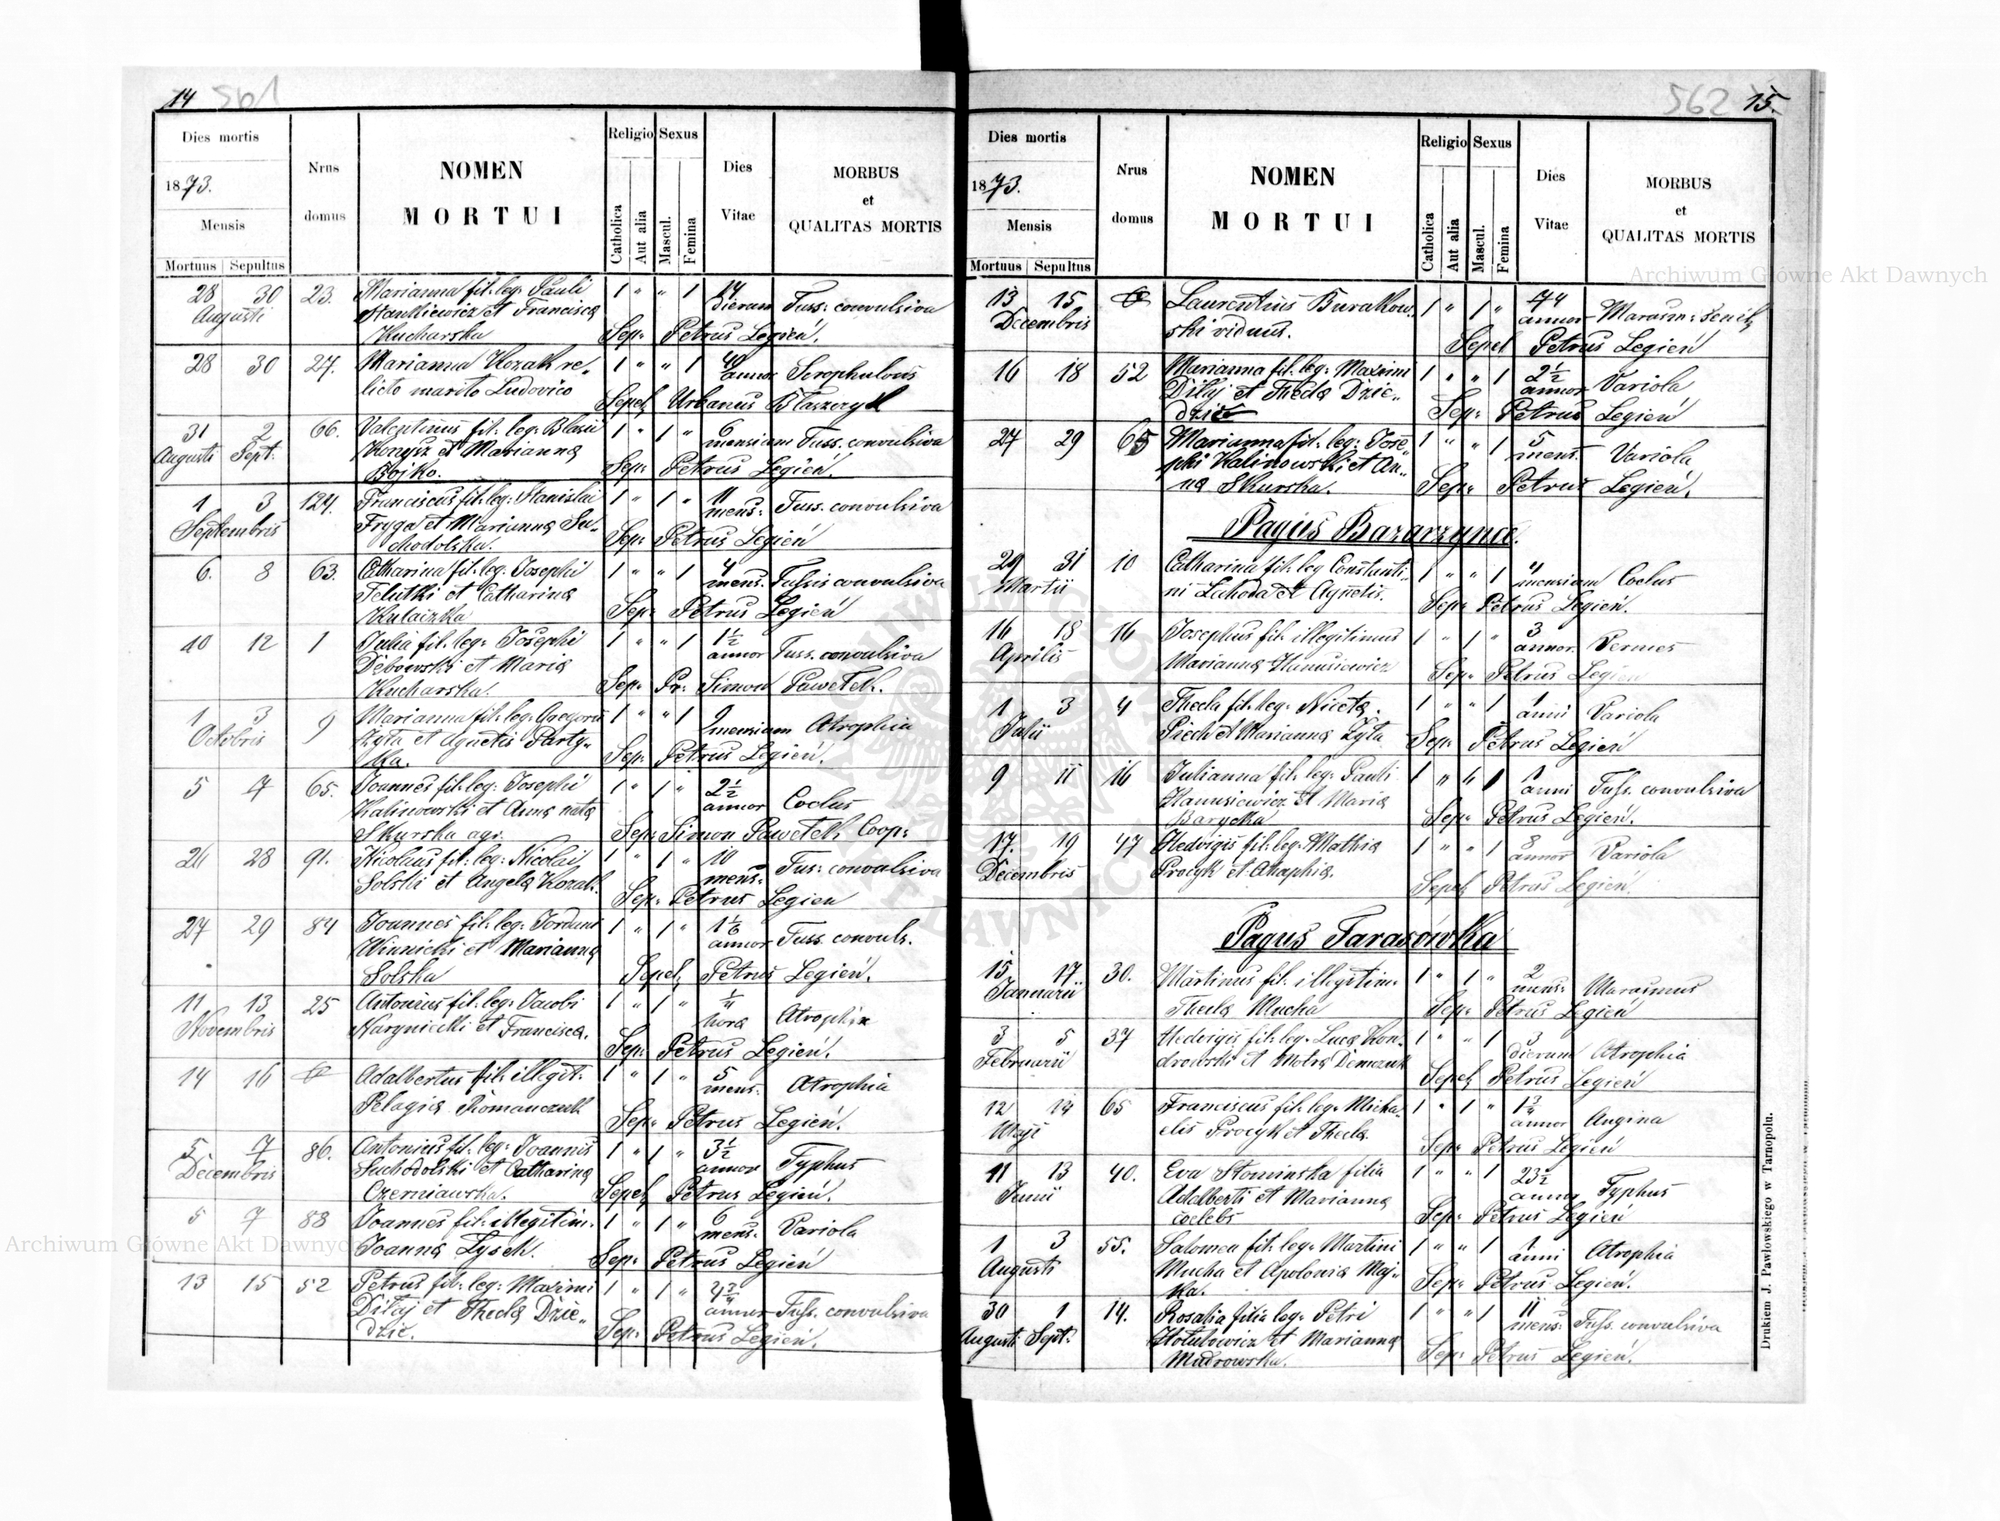 14 561
Dies mortis
1873.
Mensis
Mortuus Sepultus
Nrus
domus
NOMEN
MORTUI
Religio
Catholica
Aut alia
Sexus
Mascul.
Femina
Dies
Vitae
MORBUS
et
QUALITAS MORTIS
28 30 23. Marianna fil: leg: Pauli 1 " " 1 14
Augusti Stankiewicz et Francisca dierum Tuss. convulsiva
Kucharska Sep: Petrus Legień.
28 30 27. Marianna Kozak re- 1 " " 1 40
licto marito Ludovico annor Scrophulosis
Sepel: Urbanus Błaszczyk
31 2 66. Valentinus fil: leg: Blasii 1 " 1 " 6
Augusti Sept: Konysz et Marianna mensium Tuss. convulsiva
Bojko. Sep: Petrus Legień.
1 3 124. Franciscus fil: leg: Stanislai 1 " 1 " 11
Septembris Fryga et Marianna Su- mens: Tuss. convulsiva
chodolska. Sep: Petrus Legień
6. 8 63. Catharina fil: leg: Josephi 1 " " 1 4
Telutki et Catharina mens. Tussis convulsiva
Sep: Petrus Legień
10 12 1 Julia fil: leg: Josephi 1 " " 1 1½
Debowski et Maria annor Tuss. convulsiva
Kucharska. Sep: Pr: Simon Pawełek.
1 3 9 Marianna fil: leg: Gregorii 1 " " 1 9
Octobris Zyta et Agnetis Party- mensium Atrophia
ka. Sep: Petrus Legień.
5 7 65. Joannes fil: leg: Josephi 1 " 1 " 2½
Kalinowski et Anna nata annor Coclus
Skurska agr. Sep: Simon Pawełek Coop:
26 28 91. Nicolaus fil: leg: Nicolai 1 " 1 " 10
Solski et Angela Kozak. mens: Tus: convulsiva
Sep: Petrus Legień
27 29 84 Joannes fil: leg: Jordani 1 " 1 " 1 1/6
Winnicki et Marianna annor Tuss. convuls.
Solska Sepel: Petrus Legień.
11 13 25 Antonius fil: leg: Jacobi 1 " 1 "
Novembris Harynicki et Francisca. hora Atrophia
Sep: Petrus Legień.
14 16 Adalbertus fil: illegit: 1 " 1 " 5
Pelagia Romanczuk mens: Atrophia
Sep: Petrus Legień.
5 7 86. Antonius fil: leg: Joannis 1 " 1 " 3½
Decembris Suchodolski et Catharina annor Typhus
Czerniawska. Sepel: Petrus Legień.
5 7 88 Joannes fil: illegitim. 1 " 1 " 6
Joanna Łysek. mens: Variola
Sep: Petrus Legień
13 15 52 Petrus fil: leg: Maximi 1 " 1 " 4¾
Dilaj et Thecla Dzie- annor Tuss. convulsiva
dzic. Sep: Petrus Legień.
562 15.
Dies mortis
1873.
Mensis
Mortuus Sepultus
Nrus
domus
NOMEN
MORTUI
Religio
Catholica
Aut alia
Sexus
Mascul.
Femina
Dies
Vitae
MORBUS
et
QUALITAS MORTIS
13 15 Laurentius Burakow- 1 " 1 " 74
Decembris ski viduus. annor Marasm: senil:
Sepel Petrus Legień
16 18 52 Marianna fil: leg: Maximi 1 " " 1 2½
Dilaj et Thecla Dzie- annor Variola
dzic Sep: Petrus Legień
27 29 65 Marianna fil: leg: Jose- 1 " " 1 5
phi Kalinowski et An- mens. Variola
na Skurska. Sep: Petrus Legień.
Pagus Bazarzynce.
29 31 10 Catharina fil: leg Constanti- 1 " " 1 4
Martii ni Lahoda et Agnetis. mensium Coclus
Sep: Petrus Legień.
16 18 16 Josephus fil: illegitimus 1 " 1 " 3
Aprilis Marianna Hanusiewicz annor. Vermes
Sep: Petrus Legień
1 3 4 Thecla fil: leg: Niceta 1 " " 1 1
Julii Piech et Marianna Zyta anni Variola
Sep: Petrus Legień
9 11 16 Julianna fil: leg: Pauli 1 " " 1 1
Hanusiewicz et Maria anni Tuss. convulsiva
Barycka Sep: Petrus Legień.
17. 19 47 Hedvigis fil: leg: Mathia 1 " " 1 8
Decembris Procyk et Ahaphia. annor Variola
Sepel: Petrus Legień.
Pagus Tarasówka
15 17 30. Martinus fil: illegitim. 1 " 1 " 2
Januarii Thecla Mucha mens: Marasmus
Sep: Petrus Legień
3 5 37 Hedvigis fil: leg: Luca Kon- 1 " " 1 3
Februarii drowski et Motra Demczuk dierum Atrophia
Sepel: Petrus Legień
12 14 65 Franciscus fil: leg: Micha- 1 " 1 " 1¾
Maji elis Procyk et Thecla. annor Angina
Sep: Petrus Legień
11 13 40. Eva Słominska filia 1 " " 1 23½
Junii Adalberti et Marianna annor Typhus
coelebs Sep: Petrus Legień
1 3 55. Salomea fil: leg: Martini 1 " " 1 1
Augusti Mucha et Apolonia Maj- anni Atrophia
ka. Sep: Petrus Legień.
30 1 14. Rosalia filia leg: Petri 1 " " 1 11
Augusti Sept: Hołubowicz et Marianna mens: Tuss. convulsiva
Mudrowska. Sep: Petrus Legień.
Drukiem J. Pawłowskiego w Tarnopolu.
Archiwum Główne Akt Dawnych
Archiwum Główne Akt Dawnych